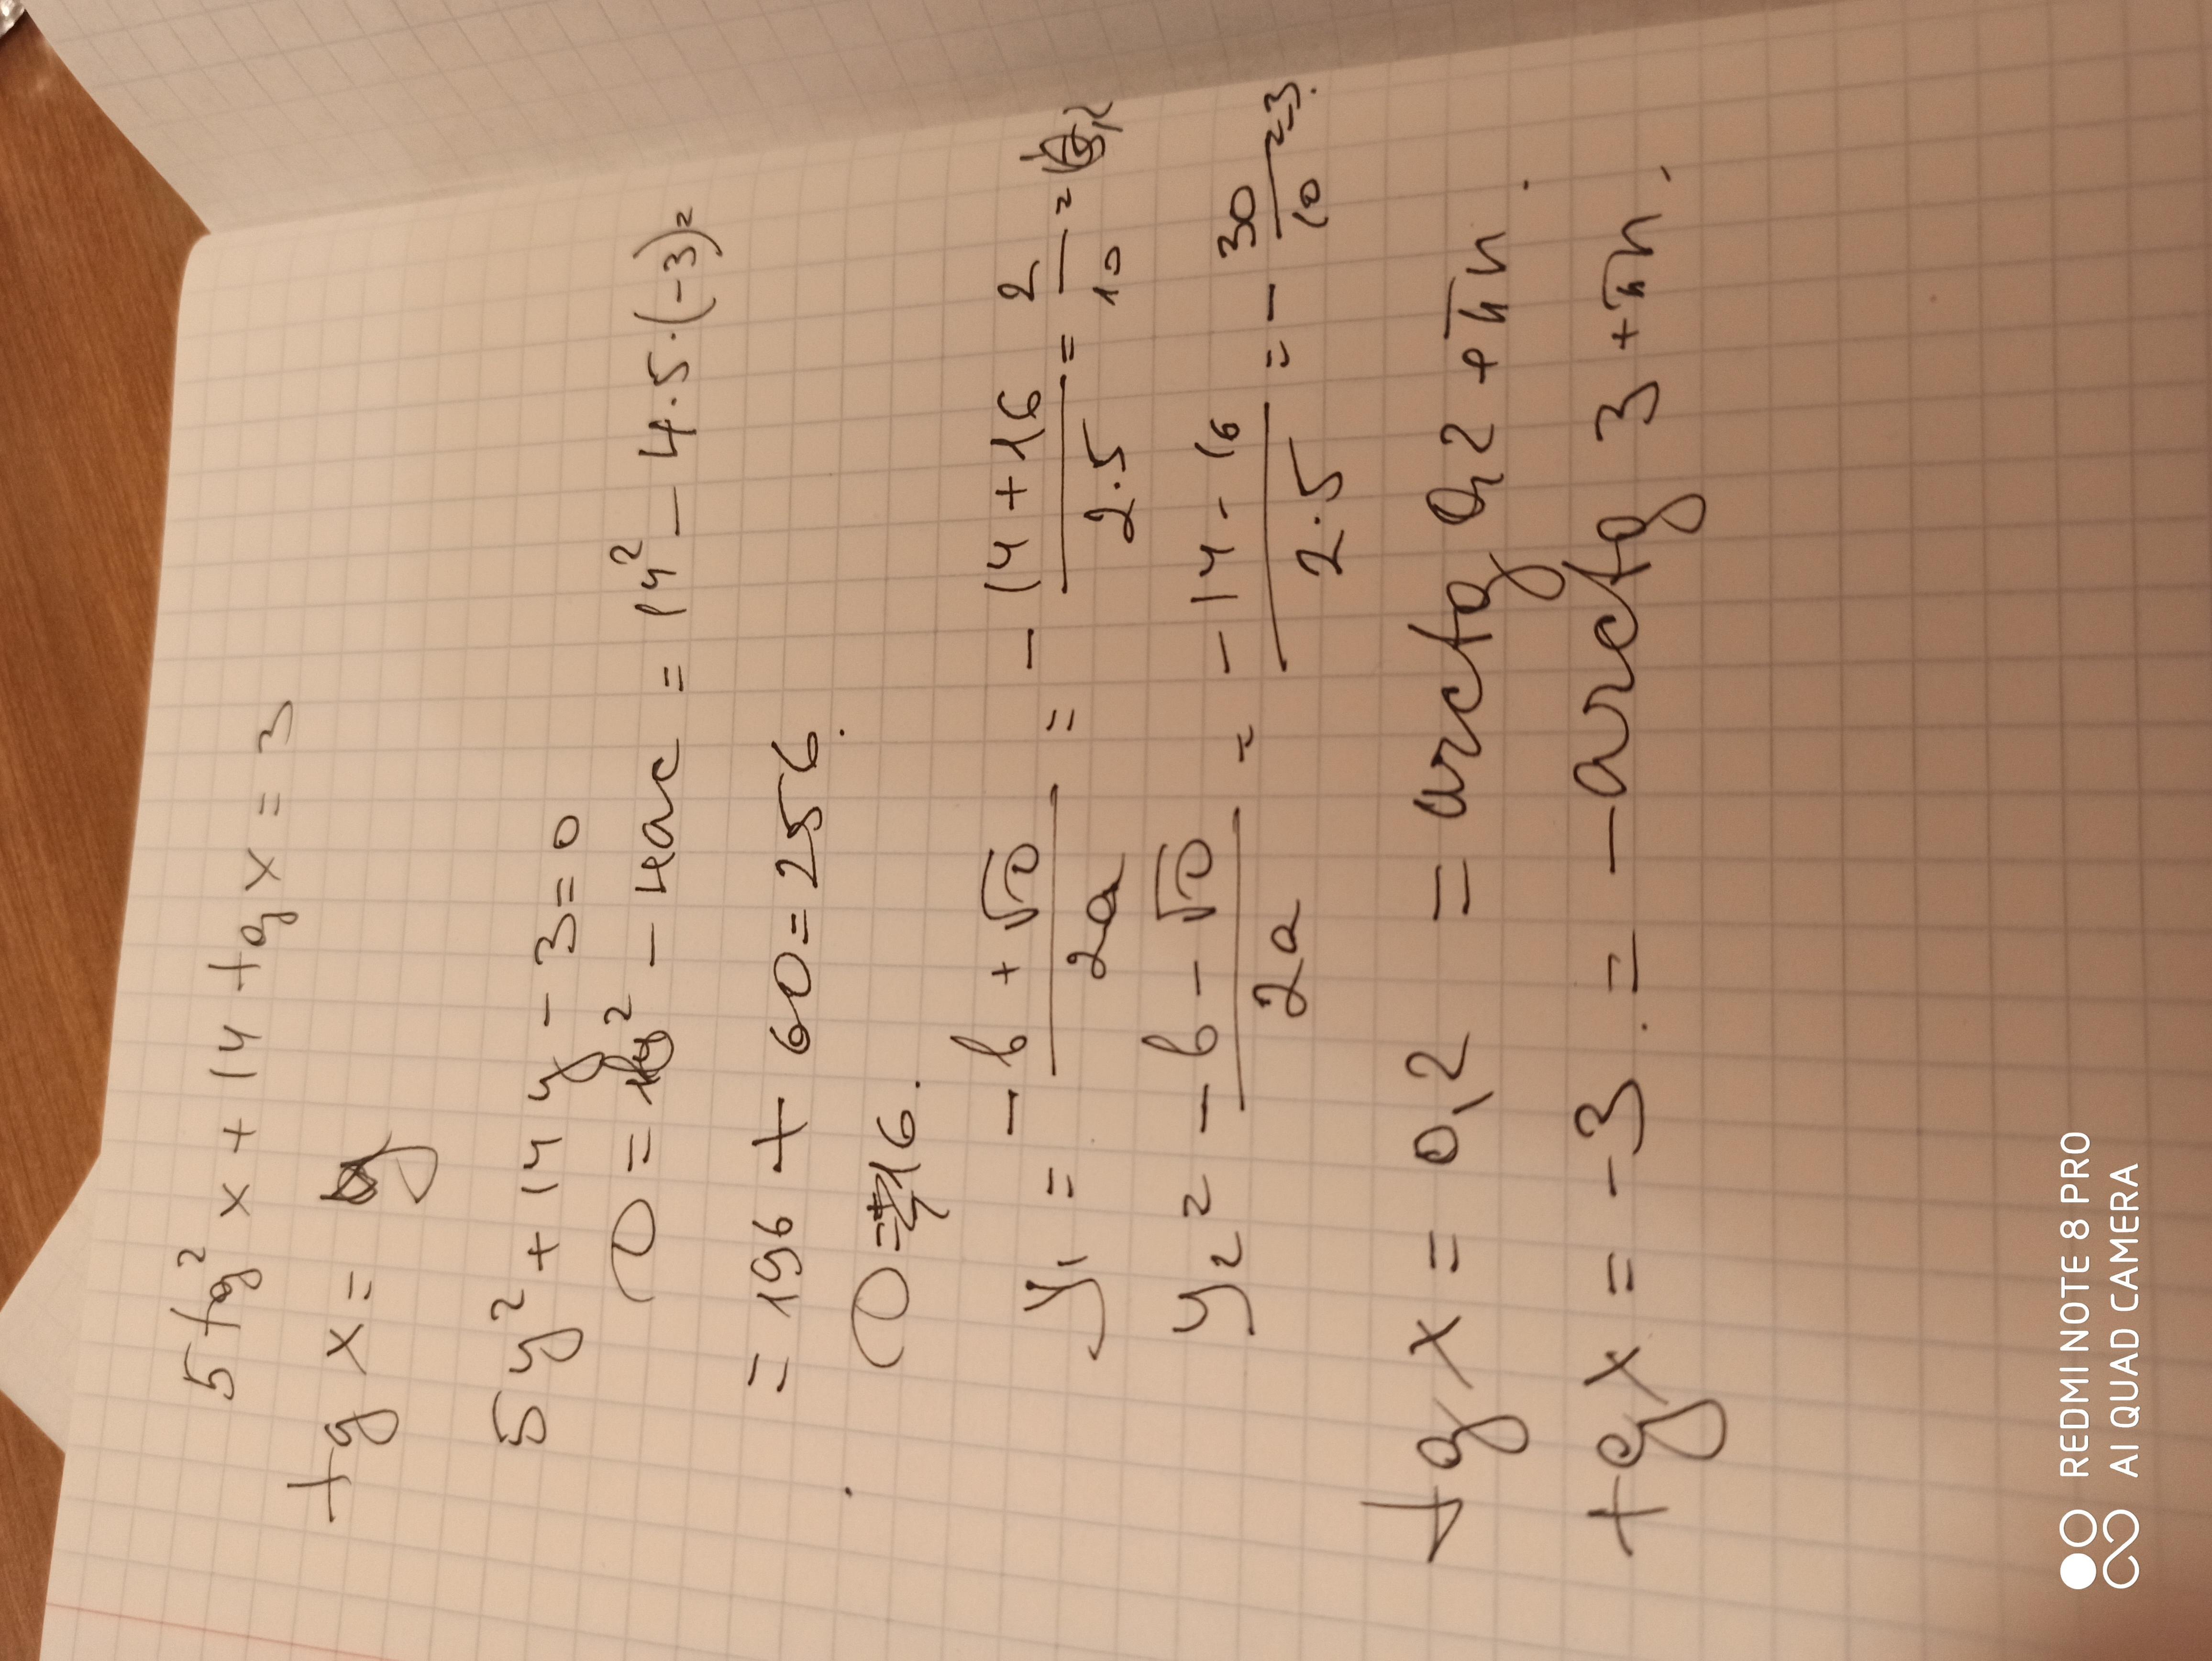 5tg² x + 14 tg x = 3
tg x = y
5y² + 14y - 3 = 0
D = b² - 4ac = 14² - 4·5·(-3) =
= 196 + 60 = 256.
D = 16.
y₁ = -b + √D / 2a = -14 + 16 / 2·5 = 2 / 10 = 0,2
y₂ = -b - √D / 2a = -14 - 16 / 2·5 = - 30 / 10 = -3.
tg x = 0,2 = arctg 0,2 + πn.
tg x = -3. = -arctg 3 + πn.
REDMI NOTE 8 PRO
AI QUAD CAMERA